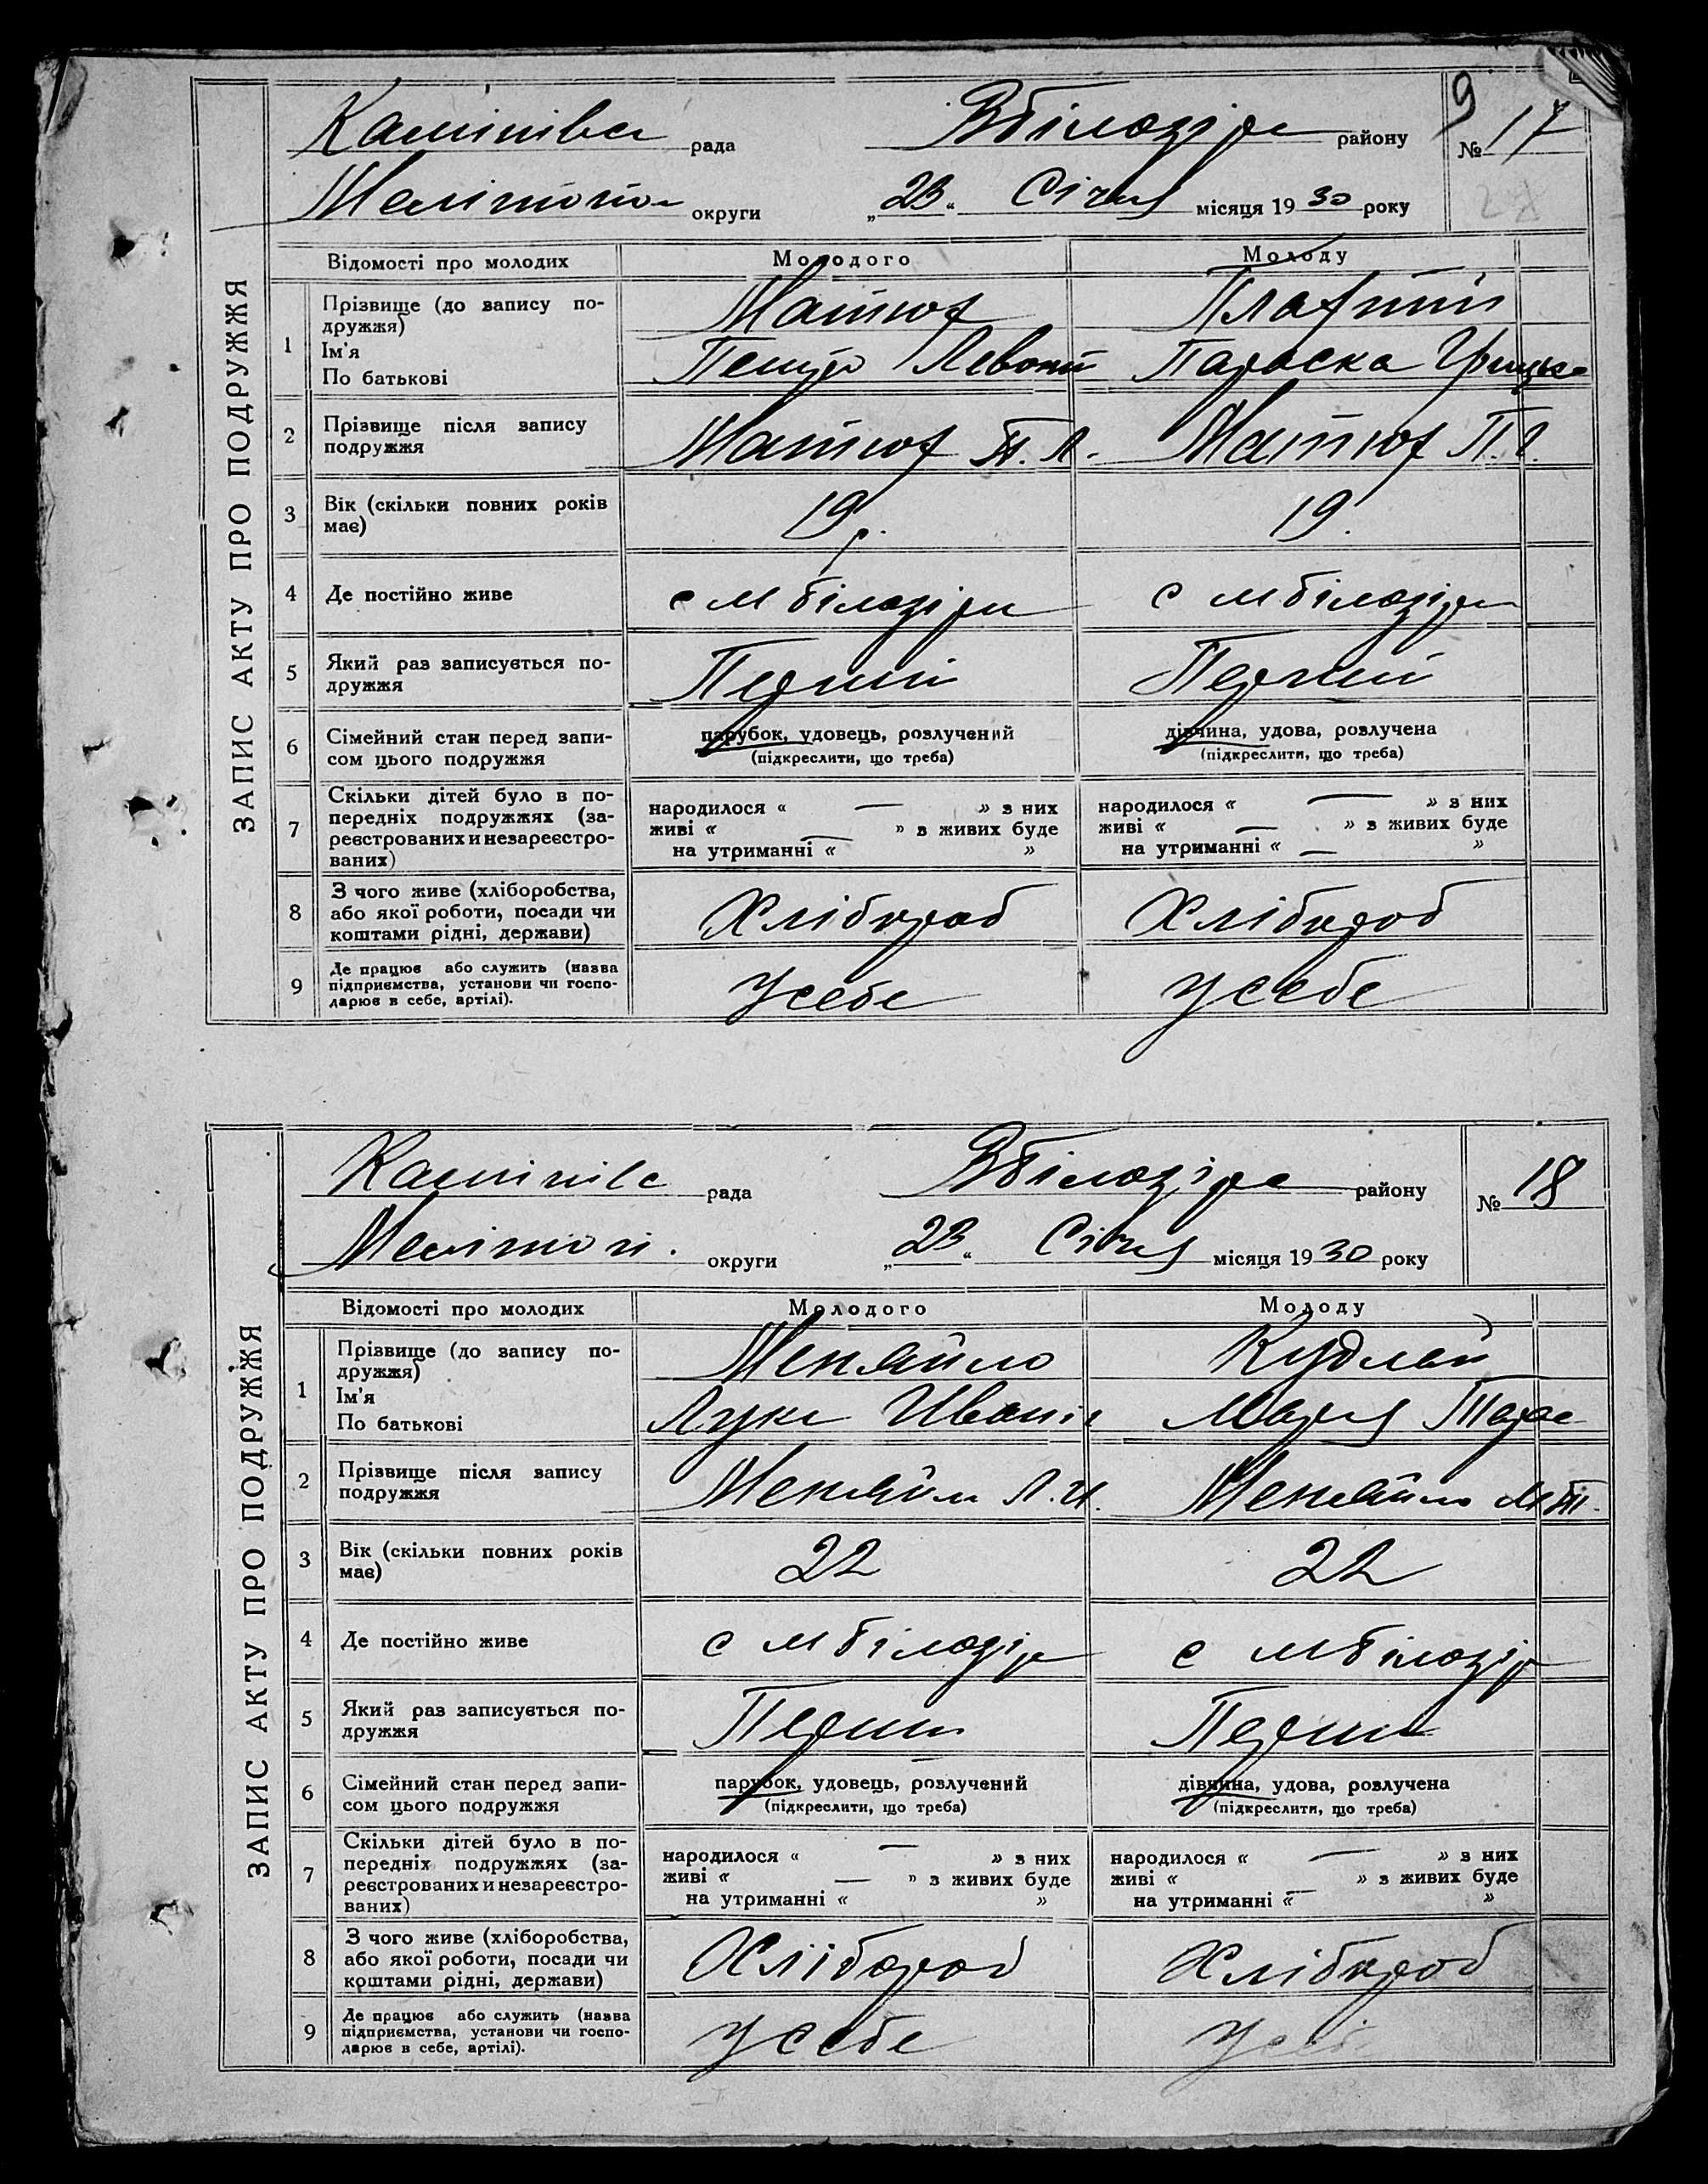 9
Камінівс рада Вбілозірс району № 17
Меліտоп округи „23“ Січня місяця 1930 року
ЗАПИС АКТУ ПРО ПОДРУЖЖЯ
Відомості про молодих Молодого Молоду
1 Прізвище (до запису по-
дружжя) Матюх
Ім'я
По батькові Петро Левонт Параска Грицьк
2 Прізвище після запису
подружжя Матюх П. Л. Матюх П. Г.
3 Вік (скільки повних років
має) 19 р. 19.
4 Де постійно живе с м білозірк с м білозірк
5 Який раз записується по-
дружжя Перший Перший
6 Сімейний стан перед запи-
сом цього подружжя
парубок, удовець, розлучений
(підкреслити, що треба)
дівчина, удова, розлучена
(підкреслити, що треба)
7 Скільки дітей було в по-
передніх подружжях (за-
реєстрованих и незареєстро-
ваних)
народилося « — » з них
живі « — » з живих буде
на утриманні « »
народилося « — » з них
живі « — » з живих буде
на утриманні « — »
8 З чого живе (хліборобства,
або якої роботи, посади чи
коштами рідні, держави) Хлібороб Хлібороб
9 Де працює або служить (назва
підприємства, установи чи госпо-
дарює в себе, артілі). Усебе Усебе
Камінівс рада Вбілозірс району № 18
Мелітоп. округи „23“ Січня місяця 1930 року
ЗАПИС АКТУ ПРО ПОДРУЖЖЯ
Відомості про молодих Молодого Молоду
1 Прізвище (до запису по-
дружжя) Меняйло Кудлай
Ім'я
По батькові Лука Иванів Марія Тарас
2 Прізвище після запису
подружжя Меняйло Л. И. Меняйло М Т.
3 Вік (скільки повних років
має) 22 22
4 Де постійно живе с м білозір с м білозір
5 Який раз записується по-
дружжя Перши Перши
6 Сімейний стан перед запи-
сом цього подружжя
парубок, удовець, розлучений
(підкреслити, що треба)
дівчина, удова, розлучена
(підкреслити, що треба)
7 Скільки дітей було в по-
передніх подружжях (за-
реєстрованих и незареєстро-
ваних)
народилося « — » з них
живі « — » з живих буде
на утриманні « »
народилося « — » з них
живі « » з живих буде
на утриманні « — »
8 З чого живе (хліборобства,
або якої роботи, посади чи
коштами рідні, держави) Хлібороб Хлібороб
9 Де працює або служить (назва
підприємства, установи чи госпо-
дарює в себе, артілі). Усебе Усебе